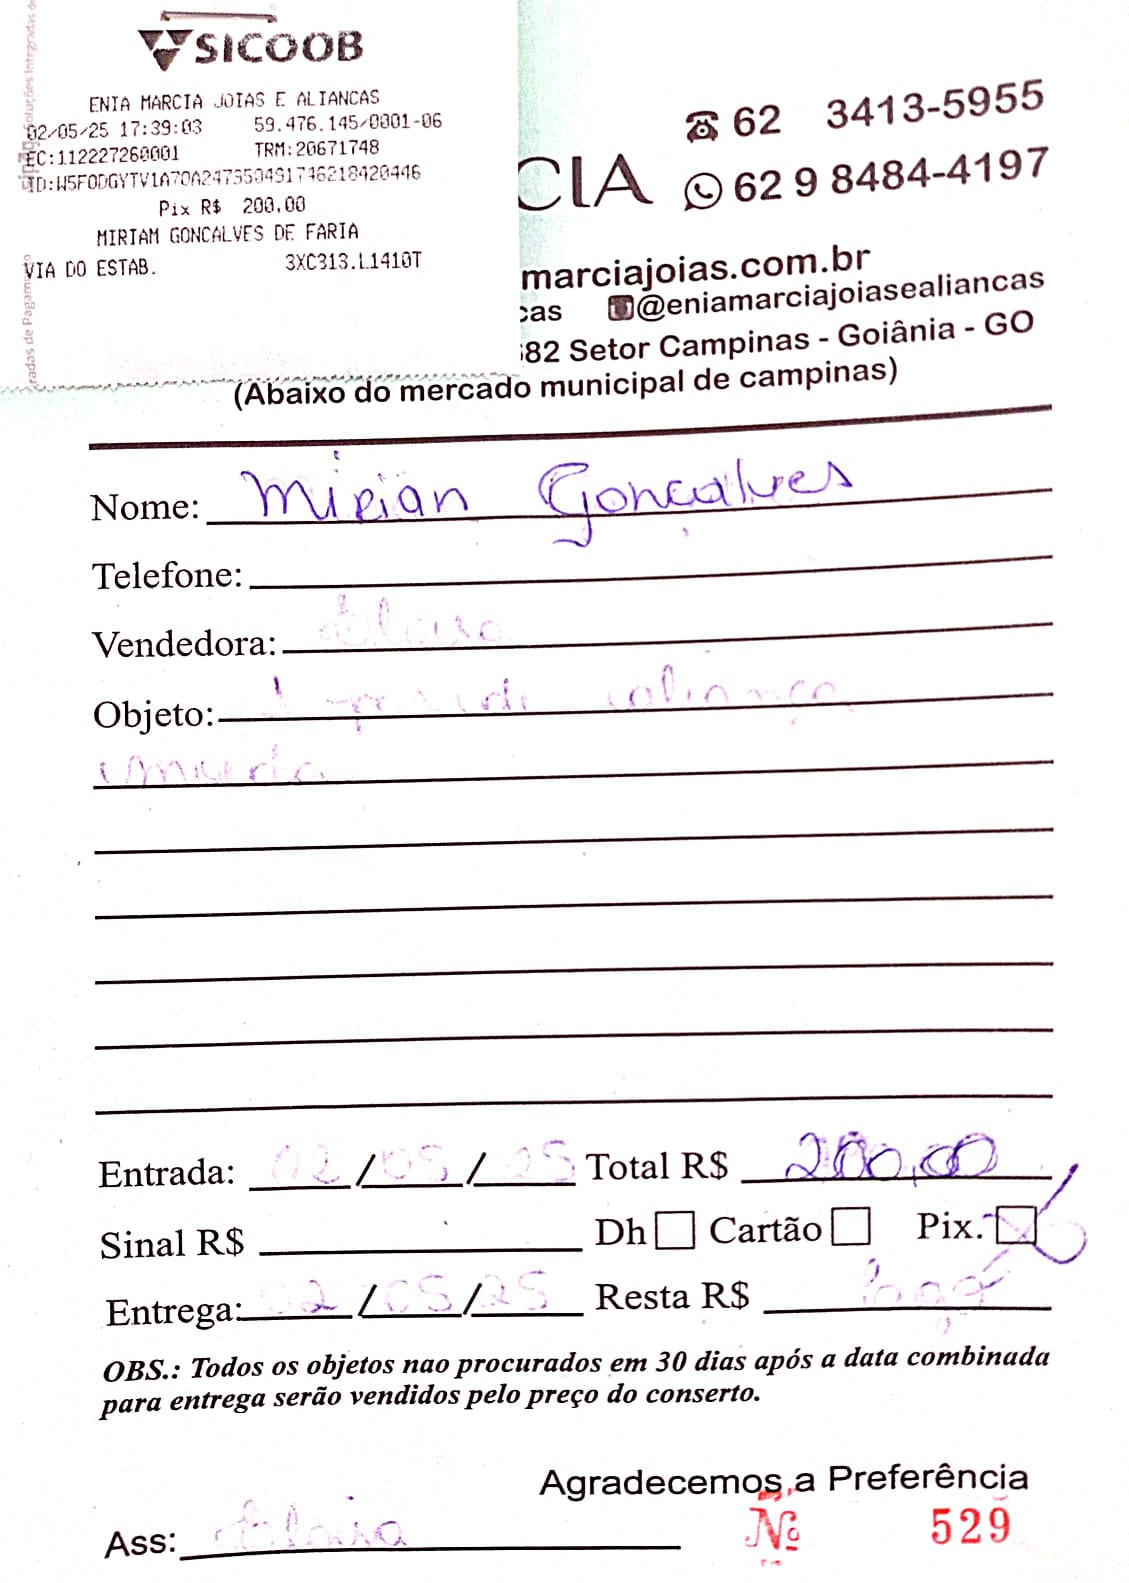 SICOOB
ENIA MARCIA JOIAS E ALIANCAS
02/05/25 17:39:03 59.476.145/0001-06
EC:112227260001 TRM:20671748
ID:W5FODGYTV1A70A247350491746218420446
Pix R$ 200.00
MIRIAM GONCALVES DE FARIA
VIA DO ESTAB. 3XC313.L1410T
62 3413-5955
CIA 62 9 8484-4197
marciajoias.com.br
cas @eniamarciajoiasealiancas
682 Setor Campinas - Goiânia - GO
(Abaixo do mercado municipal de campinas)
Nome: Mirian Gonçalves
Telefone:
Vendedora:
Objeto: 1 par de aliança
Entrada: 02/05/25 Total R$ 200,00
Sinal R$ Dh Cartão Pix.
Entrega: 02/05/25 Resta R$ Pago
OBS.: Todos os objetos nao procurados em 30 dias após a data combinada
para entrega serão vendidos pelo preço do conserto.
Agradecemos a Preferência
Ass: Nº 529